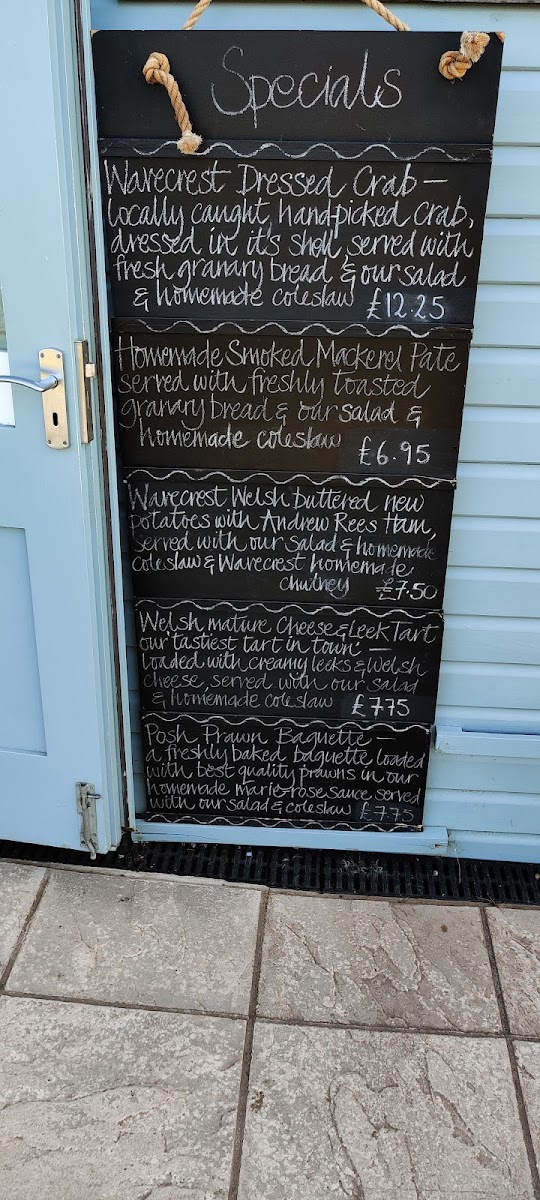 Specials
Wavecrest Dressed Crab —
locally caught, hand-picked crab,
dressed in it's shell, served with
fresh granary bread & our salad
& homemade coleslaw £12.25
Homemade Smoked Mackerel Pate
served with freshly toasted
granary bread & our salad &
homemade coleslaw £6.95
Wavecrest Welsh buttered new
potatoes with Andrew Rees Ham,
served with our salad & homemade
coleslaw & Wavecrest homemade
chutney £7.50
Welsh mature Cheese & Leek Tart
'our tastiest tart in town' —
loaded with creamy leeks & Welsh
cheese, served with our salad
& homemade coleslaw £7.75
Posh Prawn Baguette —
a freshly baked baguette loaded
with best quality prawns in our
homemade marie-rose sauce, served
with our salad & coleslaw £7.75